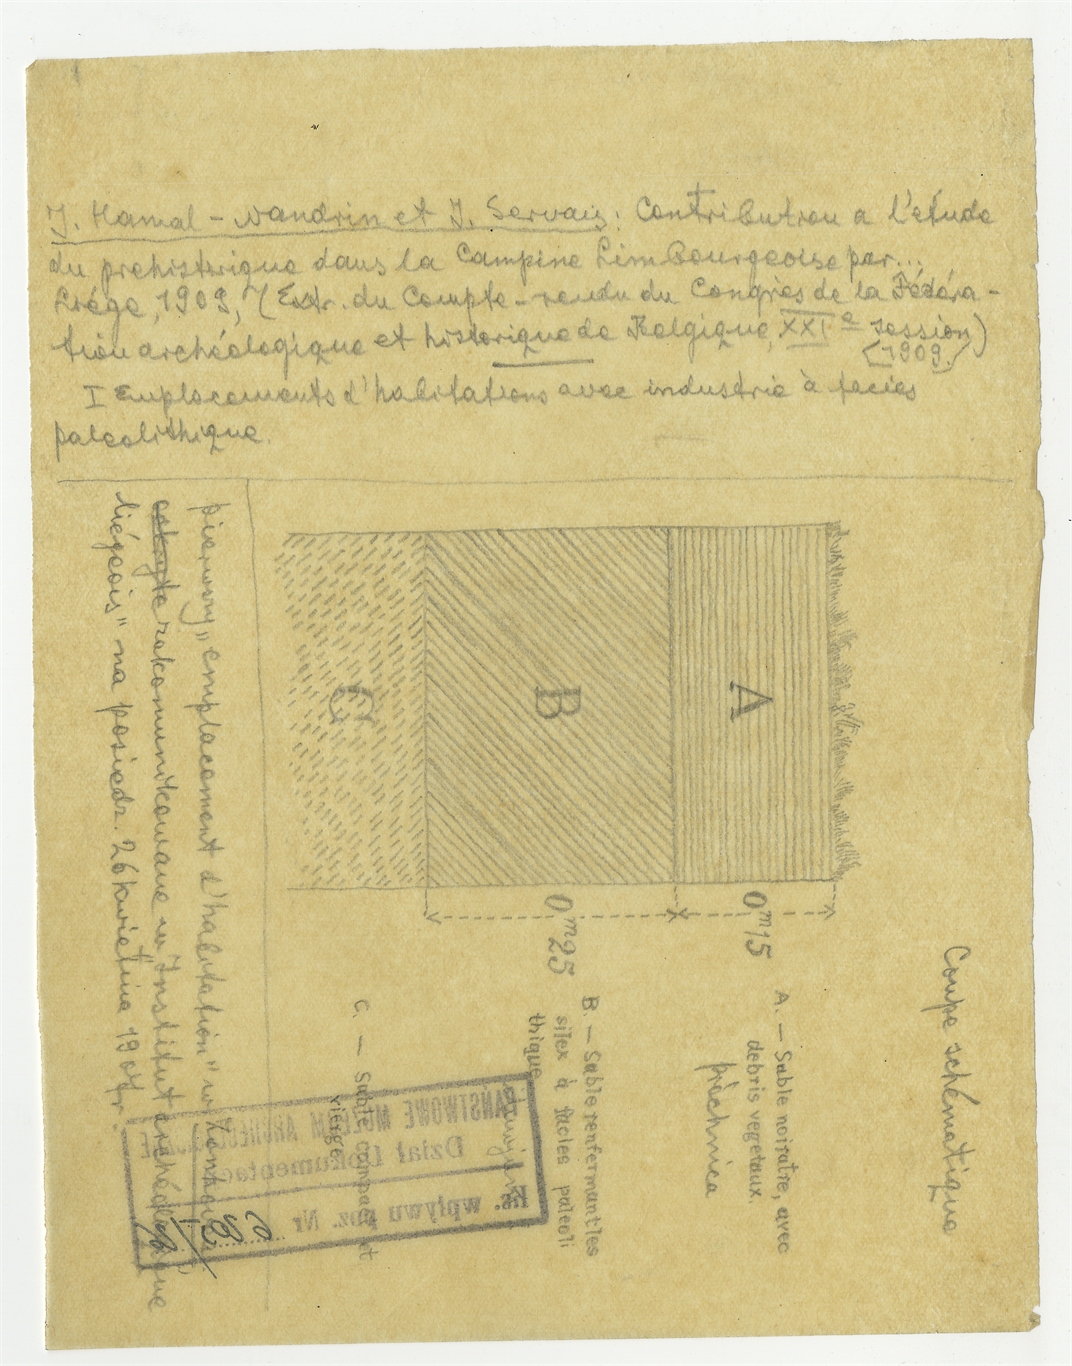 J. Hamal - Nandrin et J. Servais: Contribution a l'étude
du prehistorique dans la Campine Limbourgeoise par...
Liége, 1909, (Extr. du Compte-rendu du Congrès de la Fédéra-
tion archéologique et historique de Belgique, XXIe session)
(1909.)
I Emplacements d'habitations avec industrie à facies
paleolithique.
Coupe schématique
A
B
C
0m15
0m25
A. — Sable noiratre, avec
debris vegetaux.
próchnica
B. — Sable renfermant les
silex à facies paleoli
thique
C. — Sable compact et
vierge
pierwszy „emplacement d'habitation" w Zonhoven
zakomunikowane w „Institut archéologique
liégeois" na posiedz. 26 kwietnia 1907 r.
PAŃSTWOWE MUZEUM ARCHEOLOGICZNE
Dział Dokumentacji
Ks. wpływu poz. Nr